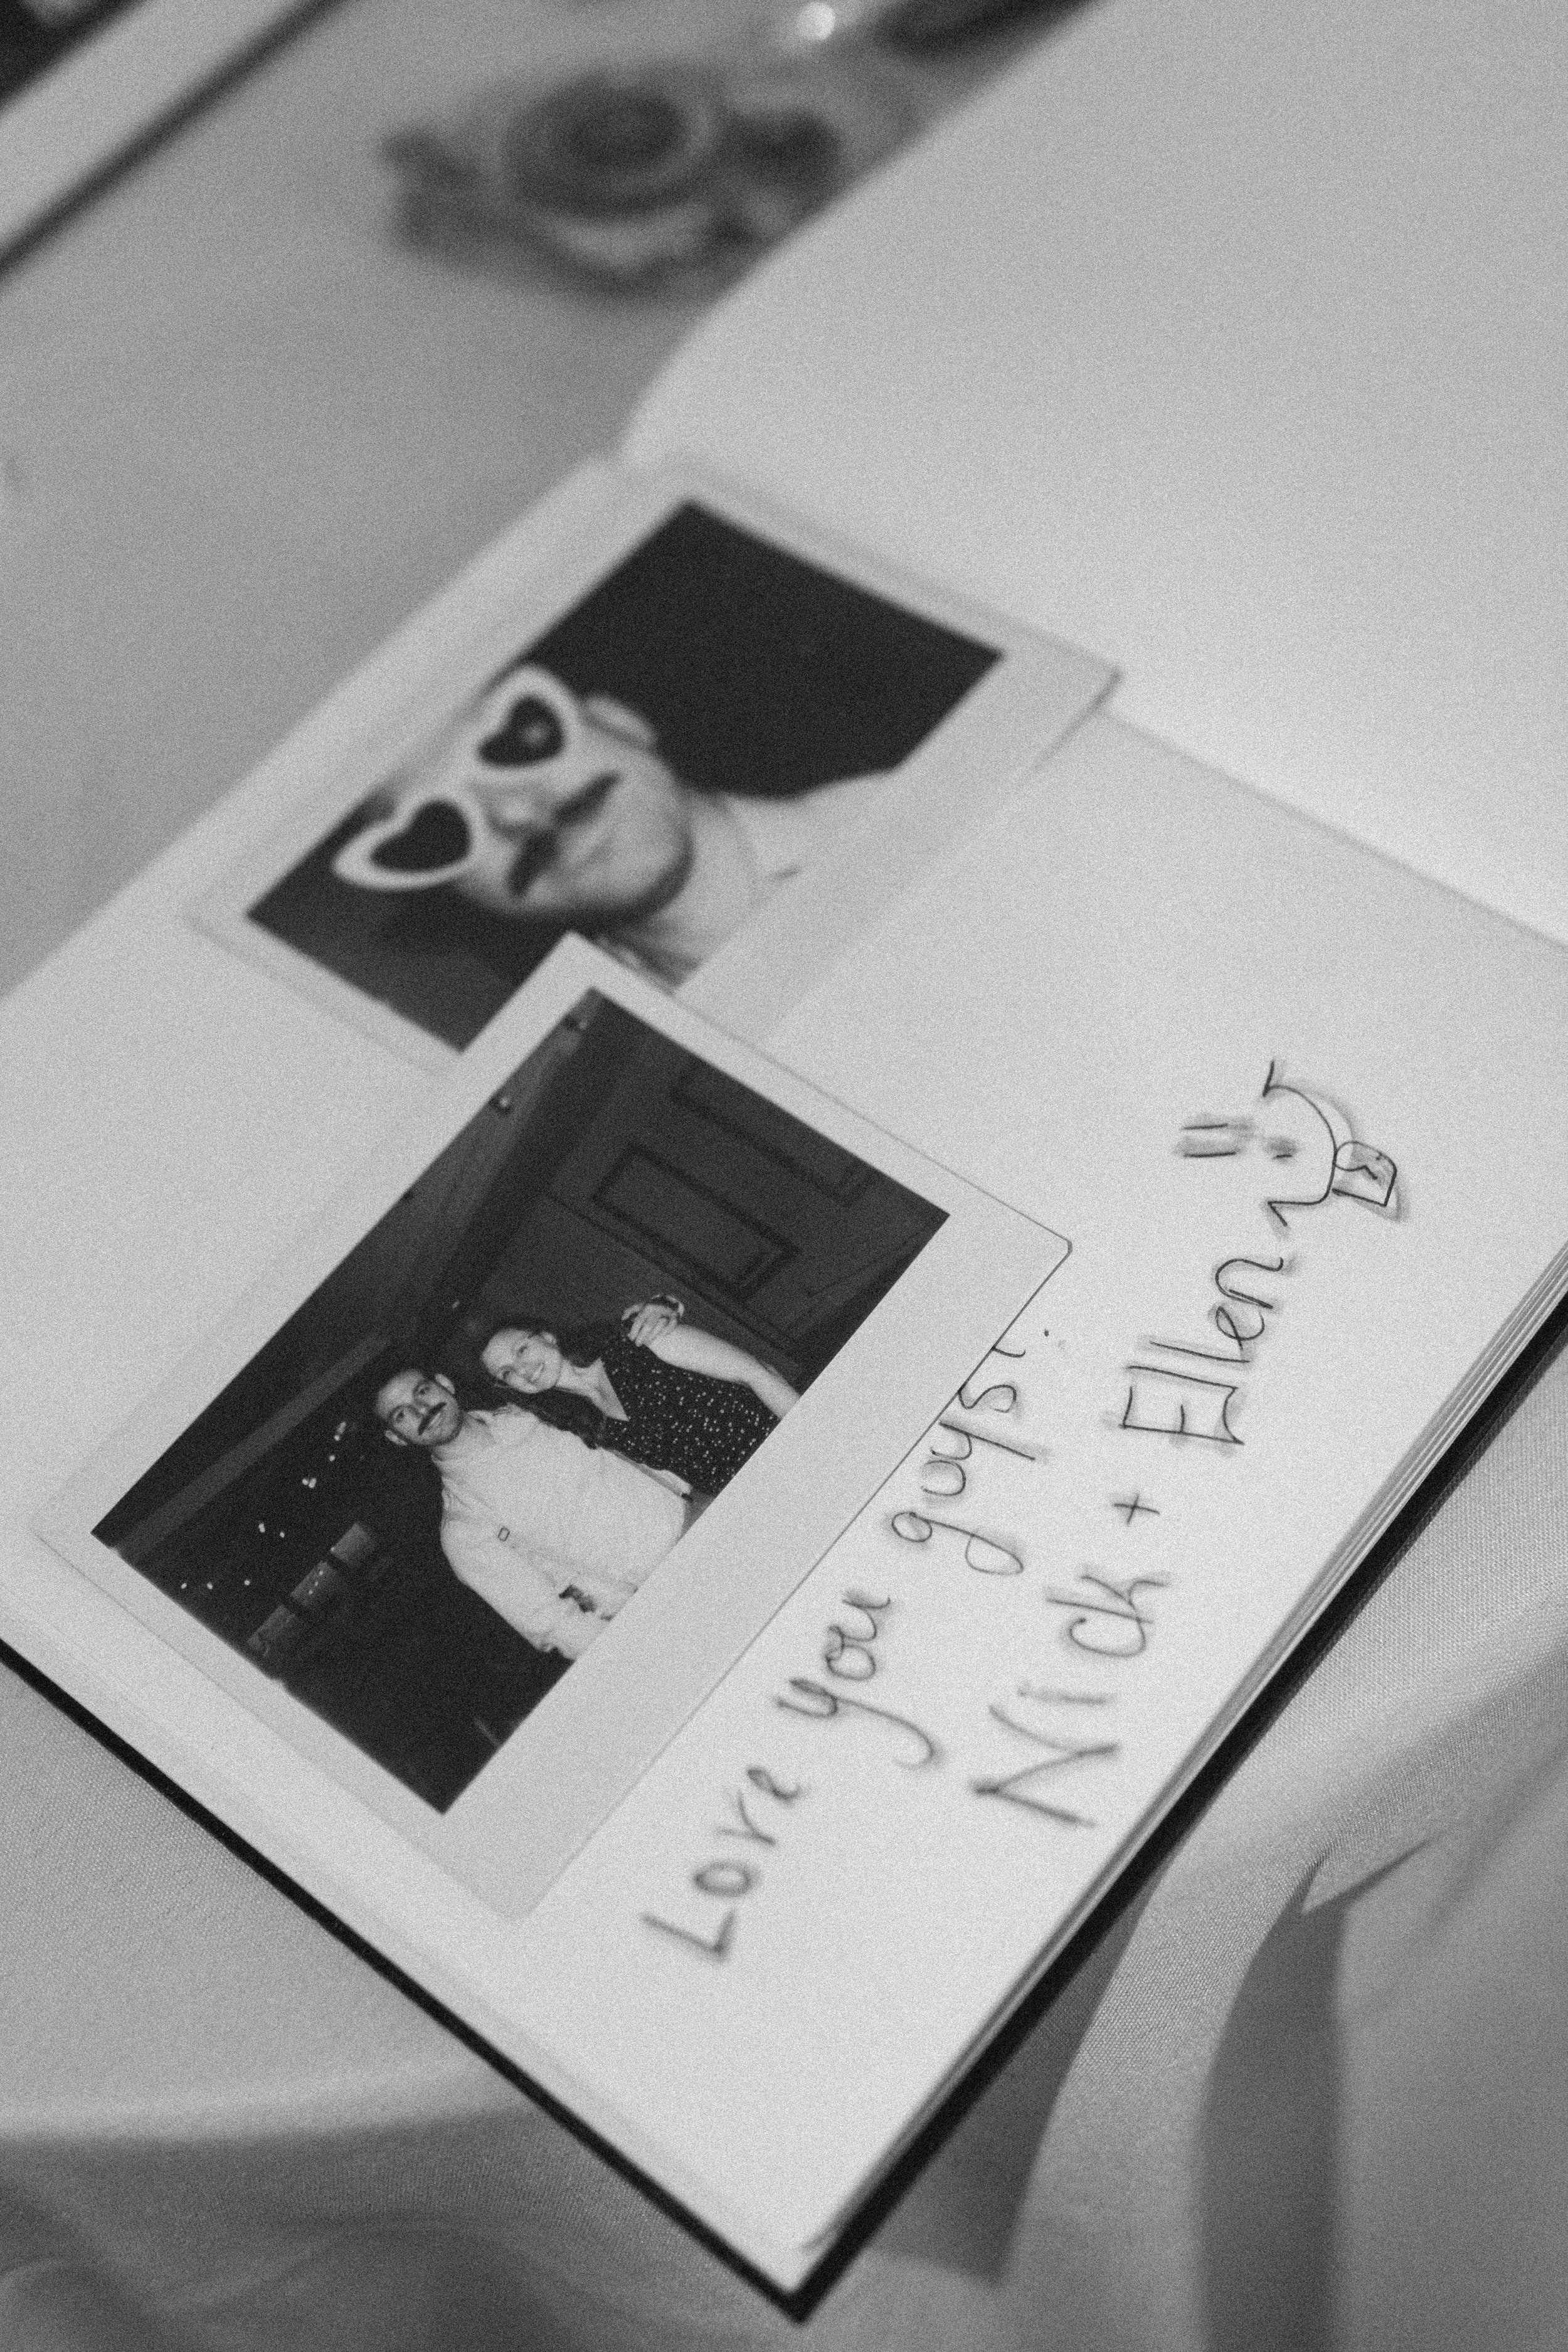 Love you guys!
Nick + Ellen